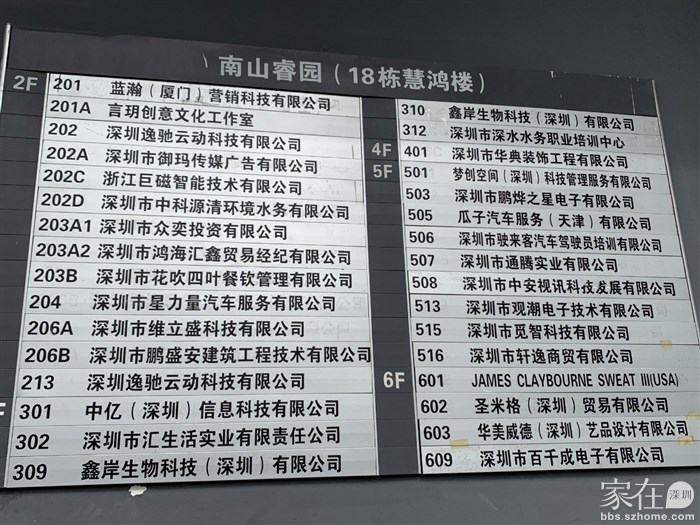 南山睿园（18栋慧鸿楼）
2F
201 蓝瀚（厦门）营销科技有限公司
201A 言玥创意文化工作室
202 深圳逸驰云动科技有限公司
202A 深圳市御玛传媒广告有限公司
202C 浙江巨磁智能技术有限公司
202D 深圳市中科源清环境水务有限公司
203A1 深圳市众奕投资有限公司
203A2 深圳市鸿海汇鑫贸易经纪有限公司
203B 深圳市花吹四叶餐饮管理有限公司
204 深圳市星力量汽车服务有限公司
206A 深圳市维立盛科技有限公司
206B 深圳市鹏盛安建筑工程技术有限公司
213 深圳逸驰云动科技有限公司
F
301 中亿（深圳）信息科技有限公司
302 深圳市汇生活实业有限责任公司
309 鑫岸生物科技（深圳）有限公司
310 鑫岸生物科技（深圳）有限公司
312 深圳市深水水务职业培训中心
4F
401 深圳市华典装饰工程有限公司
5F
501 梦创空间（深圳）科技管理服务有限公司
503 深圳市鹏烨之星电子有限公司
505 瓜子汽车服务（天津）有限公司
506 深圳市驶来客汽车驾驶员培训有限公司
507 深圳市通腾实业有限公司
508 深圳市中安视讯科技发展有限公司
513 深圳市观潮电子技术有限公司
515 深圳市觅智科技有限公司
516 深圳市轩逸商贸有限公司
6F
601 JAMES CLAYBOURNE SWEAT III(USA)
602 圣米格（深圳）贸易有限公司
603 华美威德（深圳）艺品设计有限公司
609 深圳市百千成电子有限公司
家在深圳
bbs.szhome.com